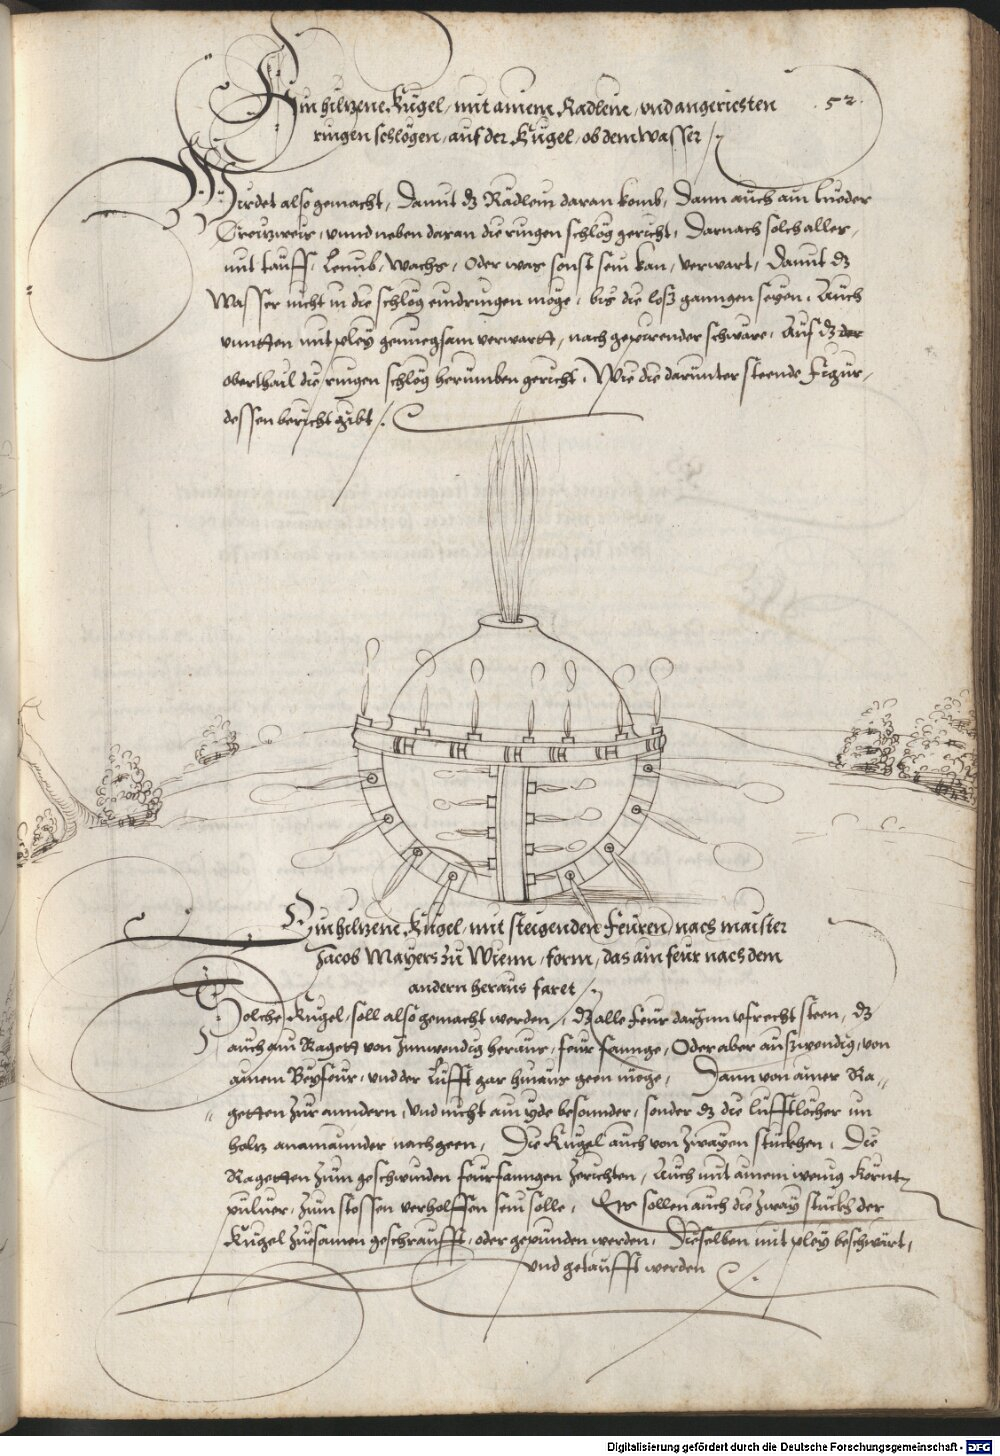 Ein hiltzene Kugel, mit ainem Radlein, vnd angerichten
52.
ringen schlögen, auf der Kugel, ob dem wasser
Wirdet also gemacht, Damit dz Rädlein daran komb, Dann auch ain lueder
Creutzweis, vnnd neben daran die ringen schlög gericht, Darnach solch aller,
mit tauff, Leimb, Wachs, Oder was sonst sein kan, verwart, Damit dz
Wasser nicht in die schlög eindringen möge, bis die losz ganngen seyen, Auch
vnntten mit pley genuegsam verwartt, nach gepürender schwäre, Auf dz der
oberthail die ringen schlög herumben gericht, Wie die darunter steende Figur,
dessen bericht gibt
Ein hiltzene Kugel, mit steigenden Feuren, nach maister
Jacob Mayers zu Wienn, form, das ain feur nach dem
andern heraus faret
Solche Kugel, soll also gemacht werden, dz alle Feur darzun vfrecht steen, dz
auch ain Ragett von Inwendig heraus, feur fannge, Oder aber auszwendig, von
ainem Beyfeur, vnd der Lufft gar hinaus geen möge, Dann von ainer Ra
getten zur anndern, vnd nicht ain yde besonder, sonder dz die lufftlöcher im
holtz anainannder nachgeen, Die Kugel auch von zwayen stuckhen, Die
Ragetten zum geschwinden feurfanngen zerichten, Auch mit ainem wenig Körnt
puluer, zum stossen verholffen sein solle, Es sollen auch die zway stuckh der
Kugel zuesamen geschraufft, oder gepunden werden, Dieselben mit pley beschwärt,
vnd getaufft werden
Digitalisierung gefördert durch die Deutsche Forschungsgemeinschaft - DFG